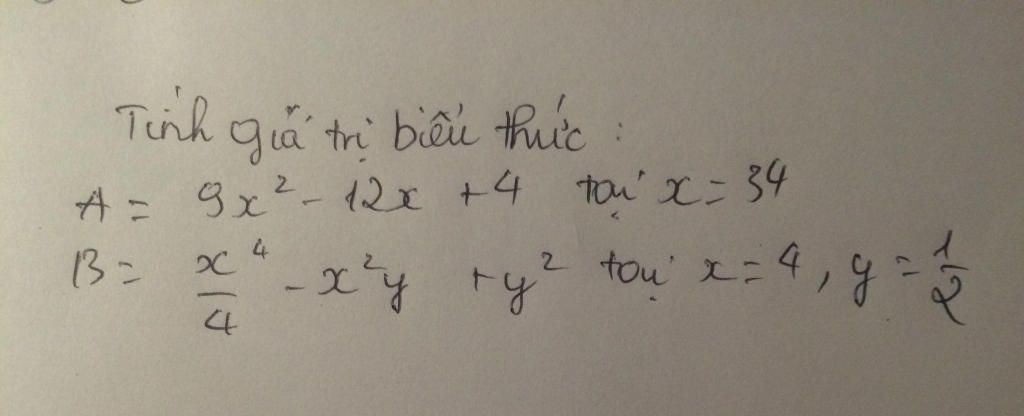 Tính giá trị biểu thức :
A = 9x² - 12x + 4 tại x = 34
B = x⁴/4 - x²y + y² tại x = 4, y = 1/2